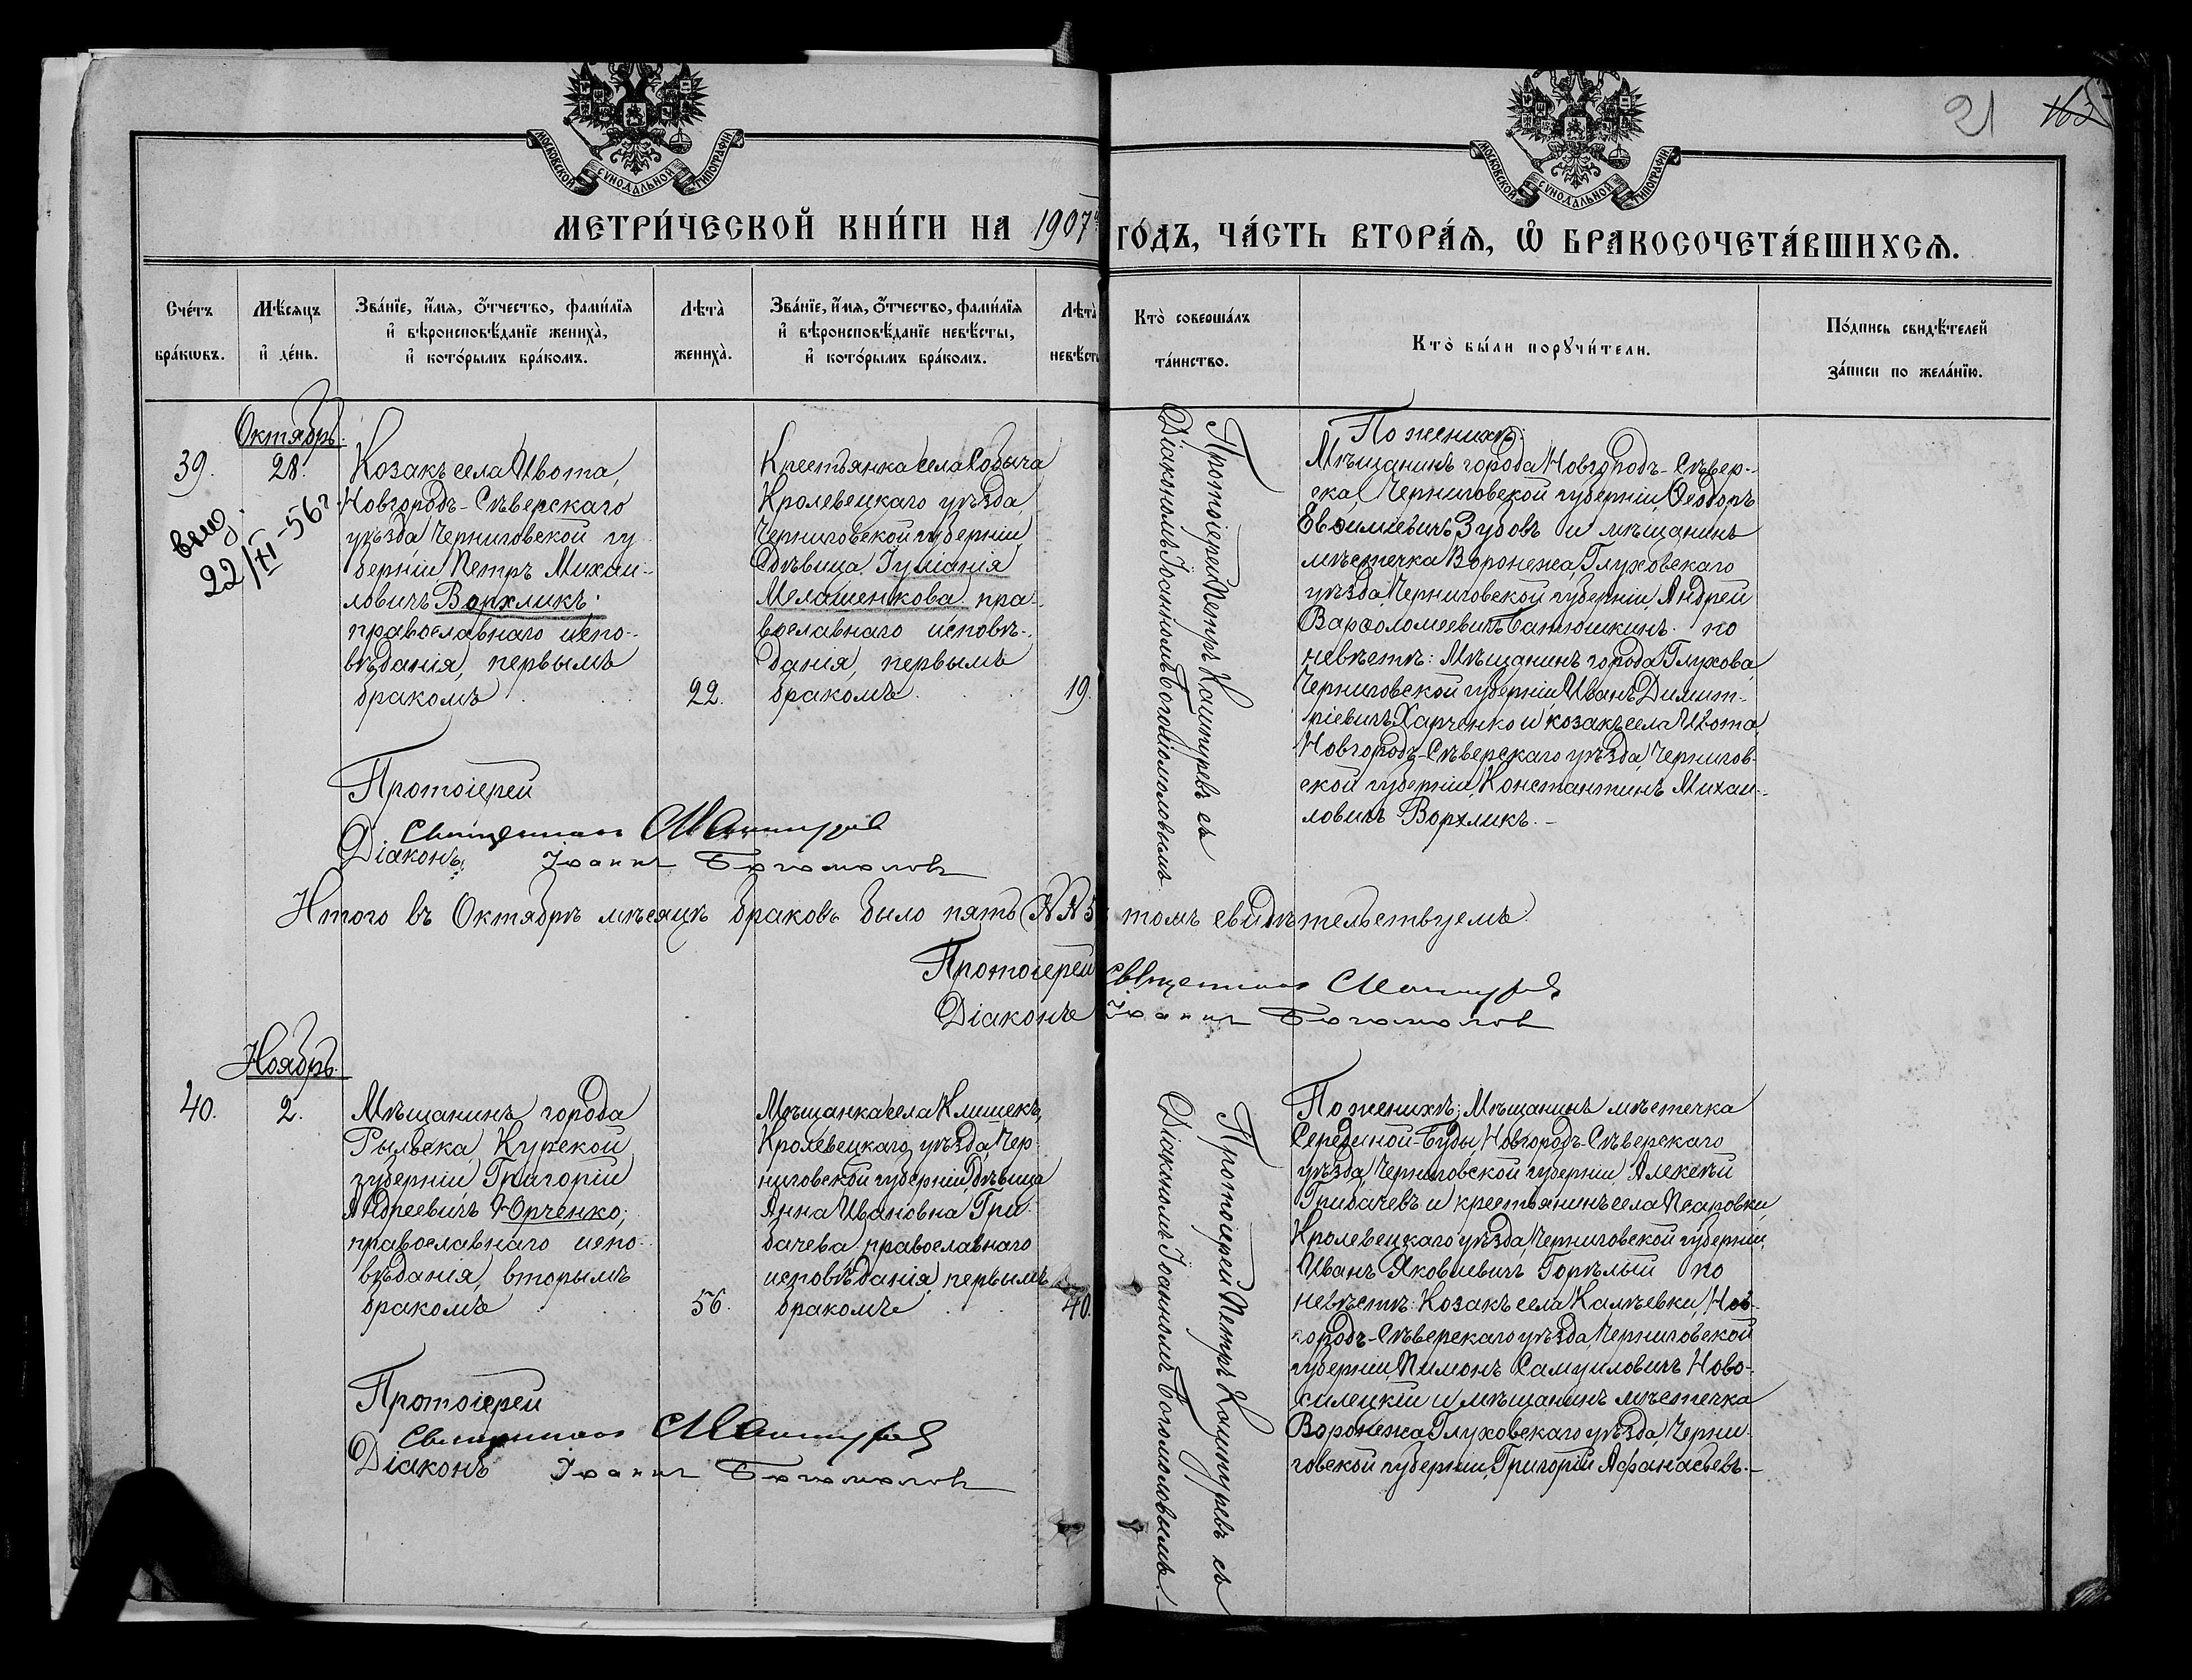 21
МОСКОВСКОЙ СѴНОДАЛЬНОЙ ТИПОГРАФІИ.
МОСКОВСКОЙ СѴНОДАЛЬНОЙ ТИПОГРАФІИ.
МЕТРИ́ЧЕСКОЙ КНИ́ГИ НА 1907й ГО́ДЪ, ЧА́СТЬ ВТОРА́Ѧ, Ѽ БРАКОСОЧЕТА́ВШИХСѦ.
Сче́тъ
бра́кѡвъ.
Мѣ́сяцъ
и҆ де́нь.
Зва́нїе, и҆́мѧ, ѻ҆́тчество, фами́лїѧ
и҆ вѣроисповѣ́данїе жениха̀,
и҆ кото́рымъ бра́комъ.
Лѣта̀
жениха̀.
Зва́нїе, и҆́мѧ, ѻ҆́тчество, фами́лїѧ
и҆ вѣроисповѣ́данїе невѣ́сты,
и҆ кото́рымъ бра́комъ.
Лѣта̀
невѣ́сты
Кто̀ соверша́лъ
та́инство.
Кто̀ бы́ли порꙋчи́тели.
По́дпись свидѣ́телей
за́писи по жела́нїю.
Октябрь.
39.
28.
выд.
22/XI-56г
Козакъ села Ивота,
Новгородъ-Сѣверскаго
уѣзда Черниговской гу-
берніи Петръ Михаи-
ловичъ Ворхликъ;
православнаго испо-
вѣданія, первымъ
бракомъ
22.
Крестьянка села Собыча
Кролевецкаго уѣзда
Черниговской губерніи
дѣвица Іуліанія
Мелашенкова пра-
вославнаго исповѣ-
данія, первымъ
бракомъ
19.
Протоіерей Петръ Кашпуревъ съ
Діакономъ Іоанномъ Богомоловымъ.
По женихѣ:
Мѣщанинъ города Новгородъ-Сѣвер-
ска, Черниговской губерніи, Ѳеодоръ
Евѳиміевичъ Зубовъ и мѣщанинъ
мѣстечка Воронежа, Глуховскаго
уѣзда, Черниговской губерніи, Андрей
Варѳоломеевичъ Батюшкинъ. по
невѣстѣ: Мѣщанинъ города Глухова,
Черниговской губерніи Иванъ Димит-
ріевичъ Харченко и козакъ села Ивота,
Новгородъ-Сѣверскаго уѣзда, Чернигов-
ской губерніи, Константинъ Михаи-
ловичъ Ворхликъ.-
Протоіерей
Діаконъ Іоаннъ Богомоловъ
Итого въ Октябрѣ мѣсяцѣ браковъ было пять (№№ 5 томъ свидѣтельствуемъ.
Протоіерей
Діаконъ Іоаннъ Богомоловъ
Ноябрь.
40.
2.
Мѣщанинъ города
Рыльска, Курской
губерніи Григорій
Андреевичъ Юрченко;
православнаго испо-
вѣданія, вторымъ
бракомъ
56.
Мѣщанка села Клишекъ,
Кролевецкаго уѣзда, Чер-
ниговской губерніи, дѣвица
Анна Ивановна Гри-
бачева православнаго
исповѣданія, первымъ
бракомъ
40.
Протоіерей Петръ Кашпуревъ съ
Діакономъ Іоанномъ Богомоловымъ.
По женихѣ; Мѣщанинъ мѣстечка
Середеной-Буды, Новгородъ-Сѣверскаго
уѣзда, Черниговской губерніи Алексѣй
Грибачевъ и крестьянинъ села Псаровки,
Кролевецкаго уѣзда, Черниговской губерніи,
Иванъ Яковлевичъ Горѣлый по
невѣстѣ: Козакъ села Калѣевки, Нов-
городъ-Сѣверскаго уѣзда, Черниговской
губерніи, Пимонъ Самуиловичъ Ново-
силецкій и мѣщанинъ мѣстечка
Воронежа Глуховскаго уѣзда, Черни-
говской губерніи, Григорій Аѳанасьевъ.-
Протоіерей
Діаконъ Іоаннъ Богомоловъ